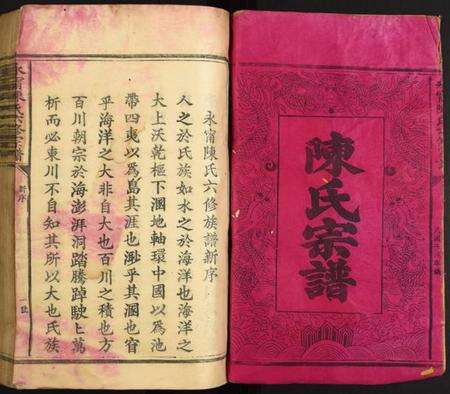 陳氏宗譜
永甯陳氏六修族譜新序
人之於氏族如水之於海洋也海洋之
大上沃乾樞下溷地軸環中國以為池
帶四夷以為島其涯也渺乎其溷也窅
乎海洋之大非自大也百川之積也方
百川朝宗於海澎湃洞踏騰踔駛上萬
析而必東川不自知其所以大也氏族
新序
一